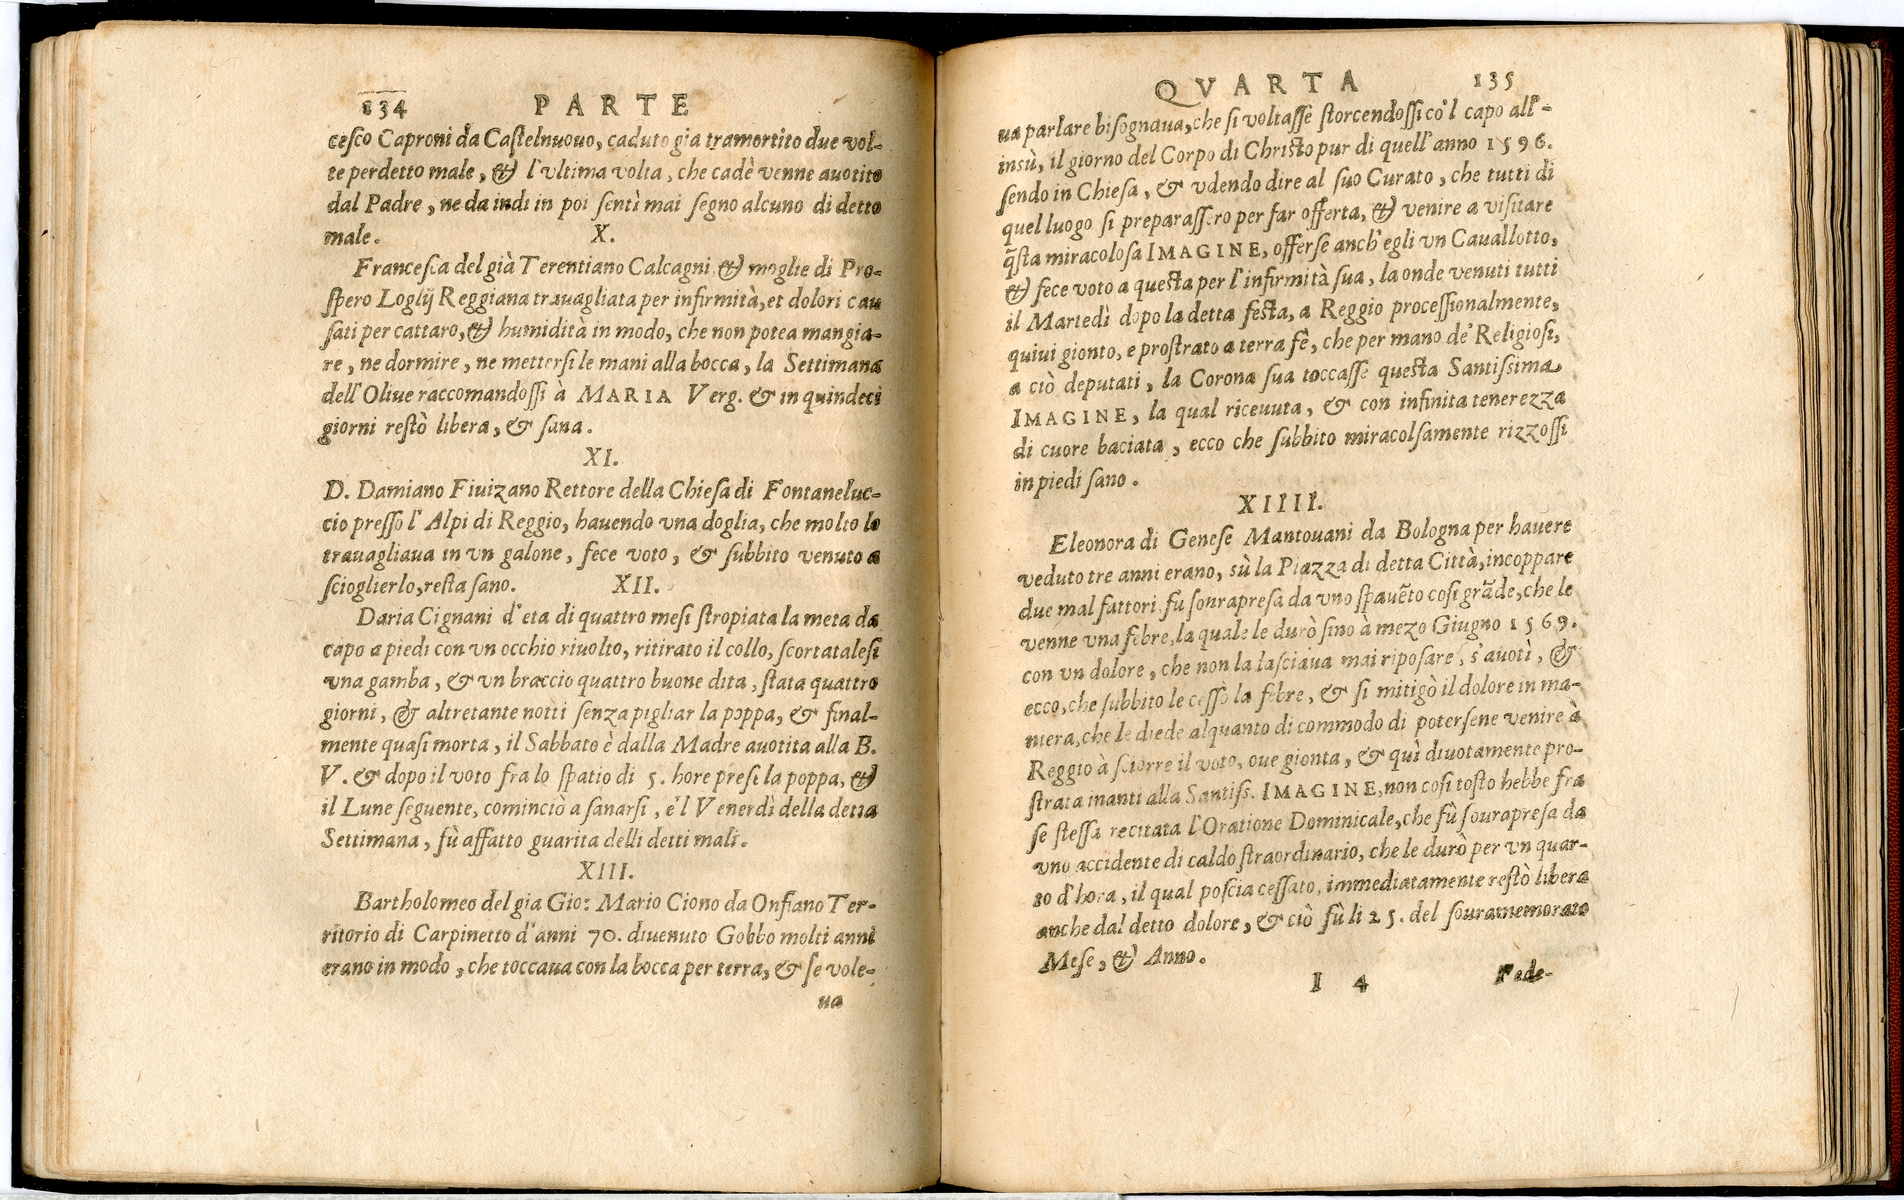 134 PARTE
cesco Caproni da Castelnuouo, caduto gia tramortito due vol-
te perdetto male, & l'vltima volta, che cadè venne auotito
dal Padre, ne da indi in poi sentì mai segno alcuno di detto
male. X.
Francesca del già Terentiano Calcagni & moglie di Pro-
spero Loglij Reggiana trauagliata per infirmità, et dolori cau
sati per cattaro, & humidità in modo, che non potea mangia-
re, ne dormire, ne mettersi le mani alla bocca, la Settimana
dell'Oliue raccomandossi à MARIA Verg. & in quindeci
giorni restò libera, & sana.
XI.
D. Damiano Fiuizano Rettore della Chiesa di Fontaneluc-
cio presso l'Alpi di Reggio, hauendo vna doglia, che molto lo
trauagliaua in vn galone, fece voto, & subbito venuto a
scioglierlo, resta sano. XII.
Daria Cignani d'eta di quattro mesi stropiata la meta da
capo a piedi con vn occhio riuolto, ritirato il collo, scortatalesi
vna gamba, & vn braccio quattro buone dita, stata quattro
giorni, & altretante notti senza pigliar la poppa, & final-
mente quasi morta, il Sabbato è dalla Madre auotita alla B.
V. & dopo il voto fra lo spatio di 5. hore prese la poppa, &
il Lune seguente, cominciò a sanarsi, e'l Venerdì della detta
Settimana, fù affatto guarita delli detti mali.
XIII.
Bartholomeo del gia Gio: Mario Ciono da Onfiano Ter-
ritorio di Carpinetto d'anni 70. diuenuto Gobbo molti anni
erano in modo, che toccaua con la bocca per terra, & se vole-
ua
QVARTA 135
ua parlare bisognaua, che si voltasse storcendossi co'l capo all'-
insù, il giorno del Corpo di Christo pur di quell'anno 1596.
sendo in Chiesa, & vdendo dire al suo Curato, che tutti di
quel luogo si preparassero per far offerta, & venire a visitare
q̃sta miracolosa IMAGINE, offerse anch'egli vn Cauallotto,
& fece voto a questa per l'infirmità sua, la onde venuti tutti
il Martedì dopo la detta festa, a Reggio processionalmente,
quiui gionto, e prostrato a terra fè, che per mano de' Religiosi,
a ciò deputati, la Corona sua toccasse questa Santissima
IMAGINE, la qual riceuuta, & con infinita tenerezza
di cuore baciata, ecco che subbito miracolsamente rizzossi
in piedi sano.
XIIII.
Eleonora di Genese Mantouani da Bologna per hauere
veduto tre anni erano, sù la Piazza di detta Città, incoppare
due mal fattori, fu sonrapresa da vno spauẽto cosi grãde, che le
venne vna febre, la quale le durò sino à mezo Giugno 1569.
con vn dolore, che non la lasciaua mai riposare, s'auotì, &
ecco, che subbito le cessò la febre, & si mitigò il dolore in ma-
niera, che le diede alquanto di commodo di potersene venire à
Reggio à sciorre il voto, oue gionta, & quì diuotamente pro-
strata inanti alla Santiss. IMAGINE, non cosi tosto hebbe fra
se stessa recitata l'Oratione Dominicale, che fù sourapresa da
vno accidente di caldo straordinario, che le durò per vn quar-
to d'hora, il qual poscia cessato, immediatamente restò libera
anche dal detto dolore, & ciò fù li 25. del souramemorato
Mese, & Anno.
I 4 Fede-